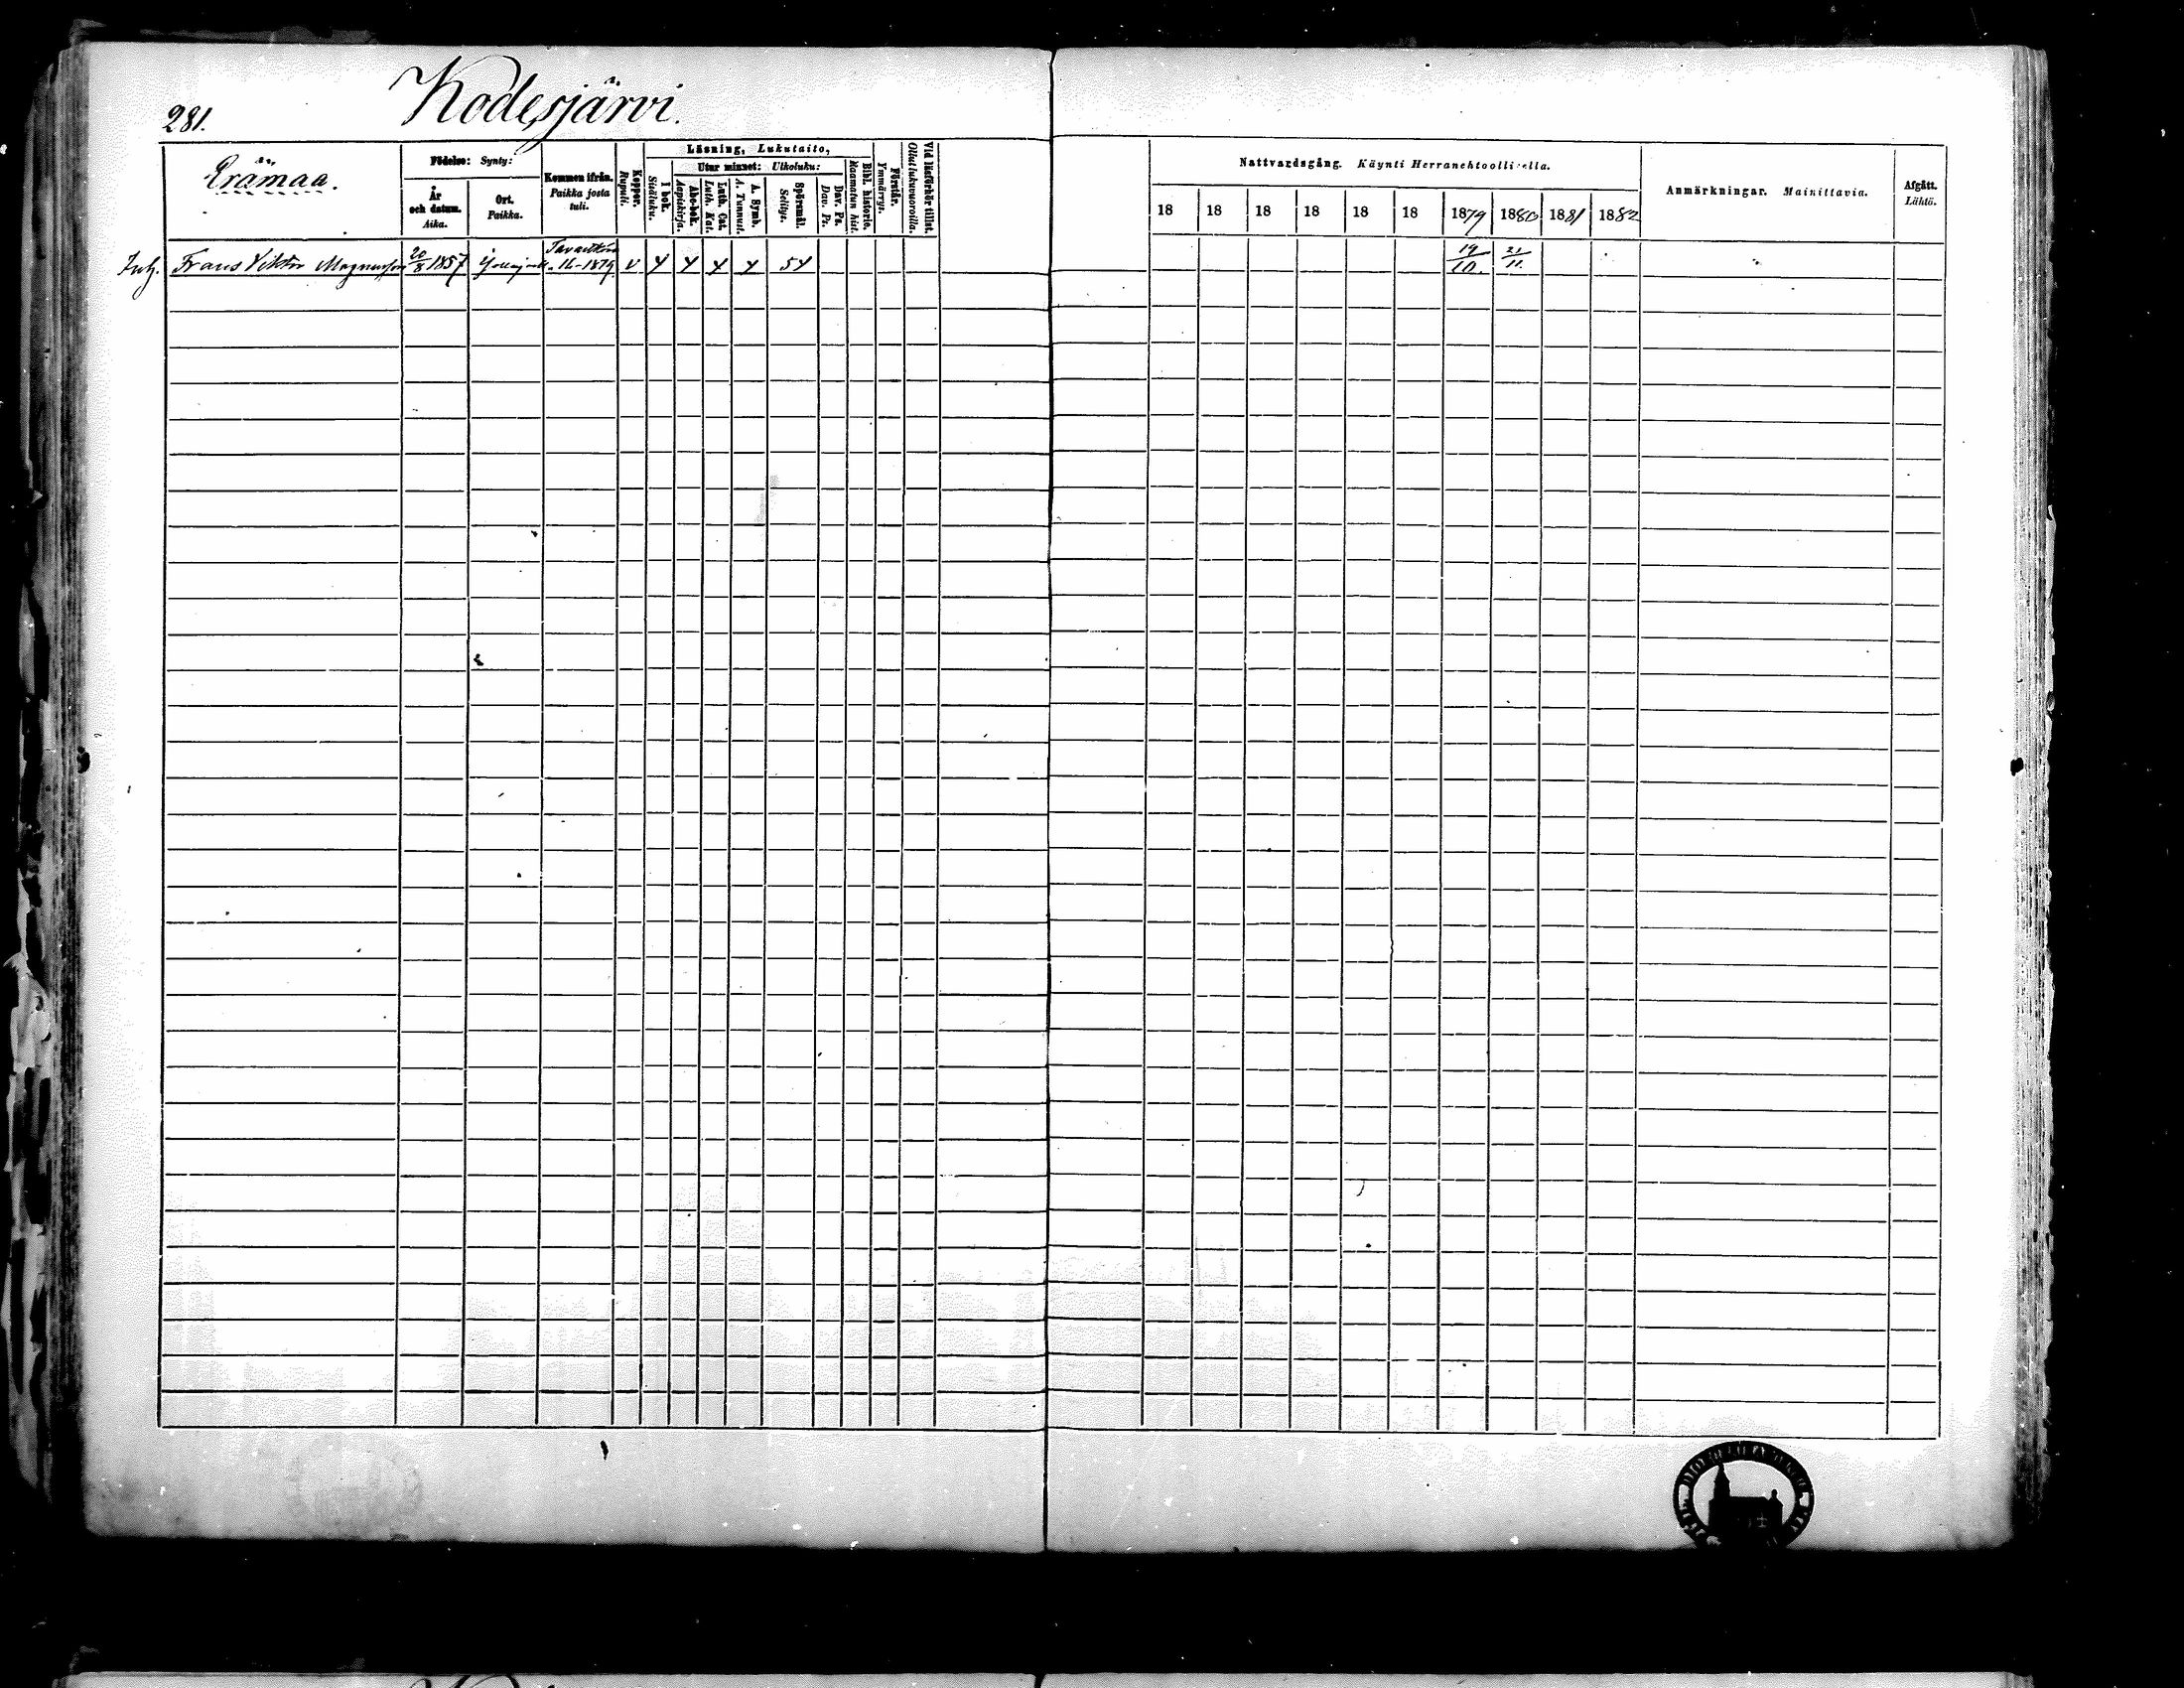 281.
Kodesjärvi.
Erämaa.
Födelse: Synty:
År och datum. Aika.
Ort. Paikka.
Kommen ifrån. Paikka josta tuli.
Koppor. Rupuli.
Läsning, Lukutaito,
I bok. Sisäluku.
Utur minnet: Ulkoluku:
Abc-bok. Aapiskirja.
Luth. Cat. Luth. Kat.
A. Symb. A. Tunnust.
Spörsmål. Selitys.
Dav. Ps. Dav. Ps.
Bibl. historie. Raamatun hist.
Förstår. Ymmärrys.
Vid läsförhör tillst. Ollut lukuvuoroilla.
Nattvardsgång. Käynti Herranehtoollisella.
18 18 18 18 18 18 1879 1880 1881 1882
Anmärkningar. Mainittavia.
Afgått. Lähtö.
Frans Viktor Magnusson 20/8 1857 1879 v 19/10. 21/11.